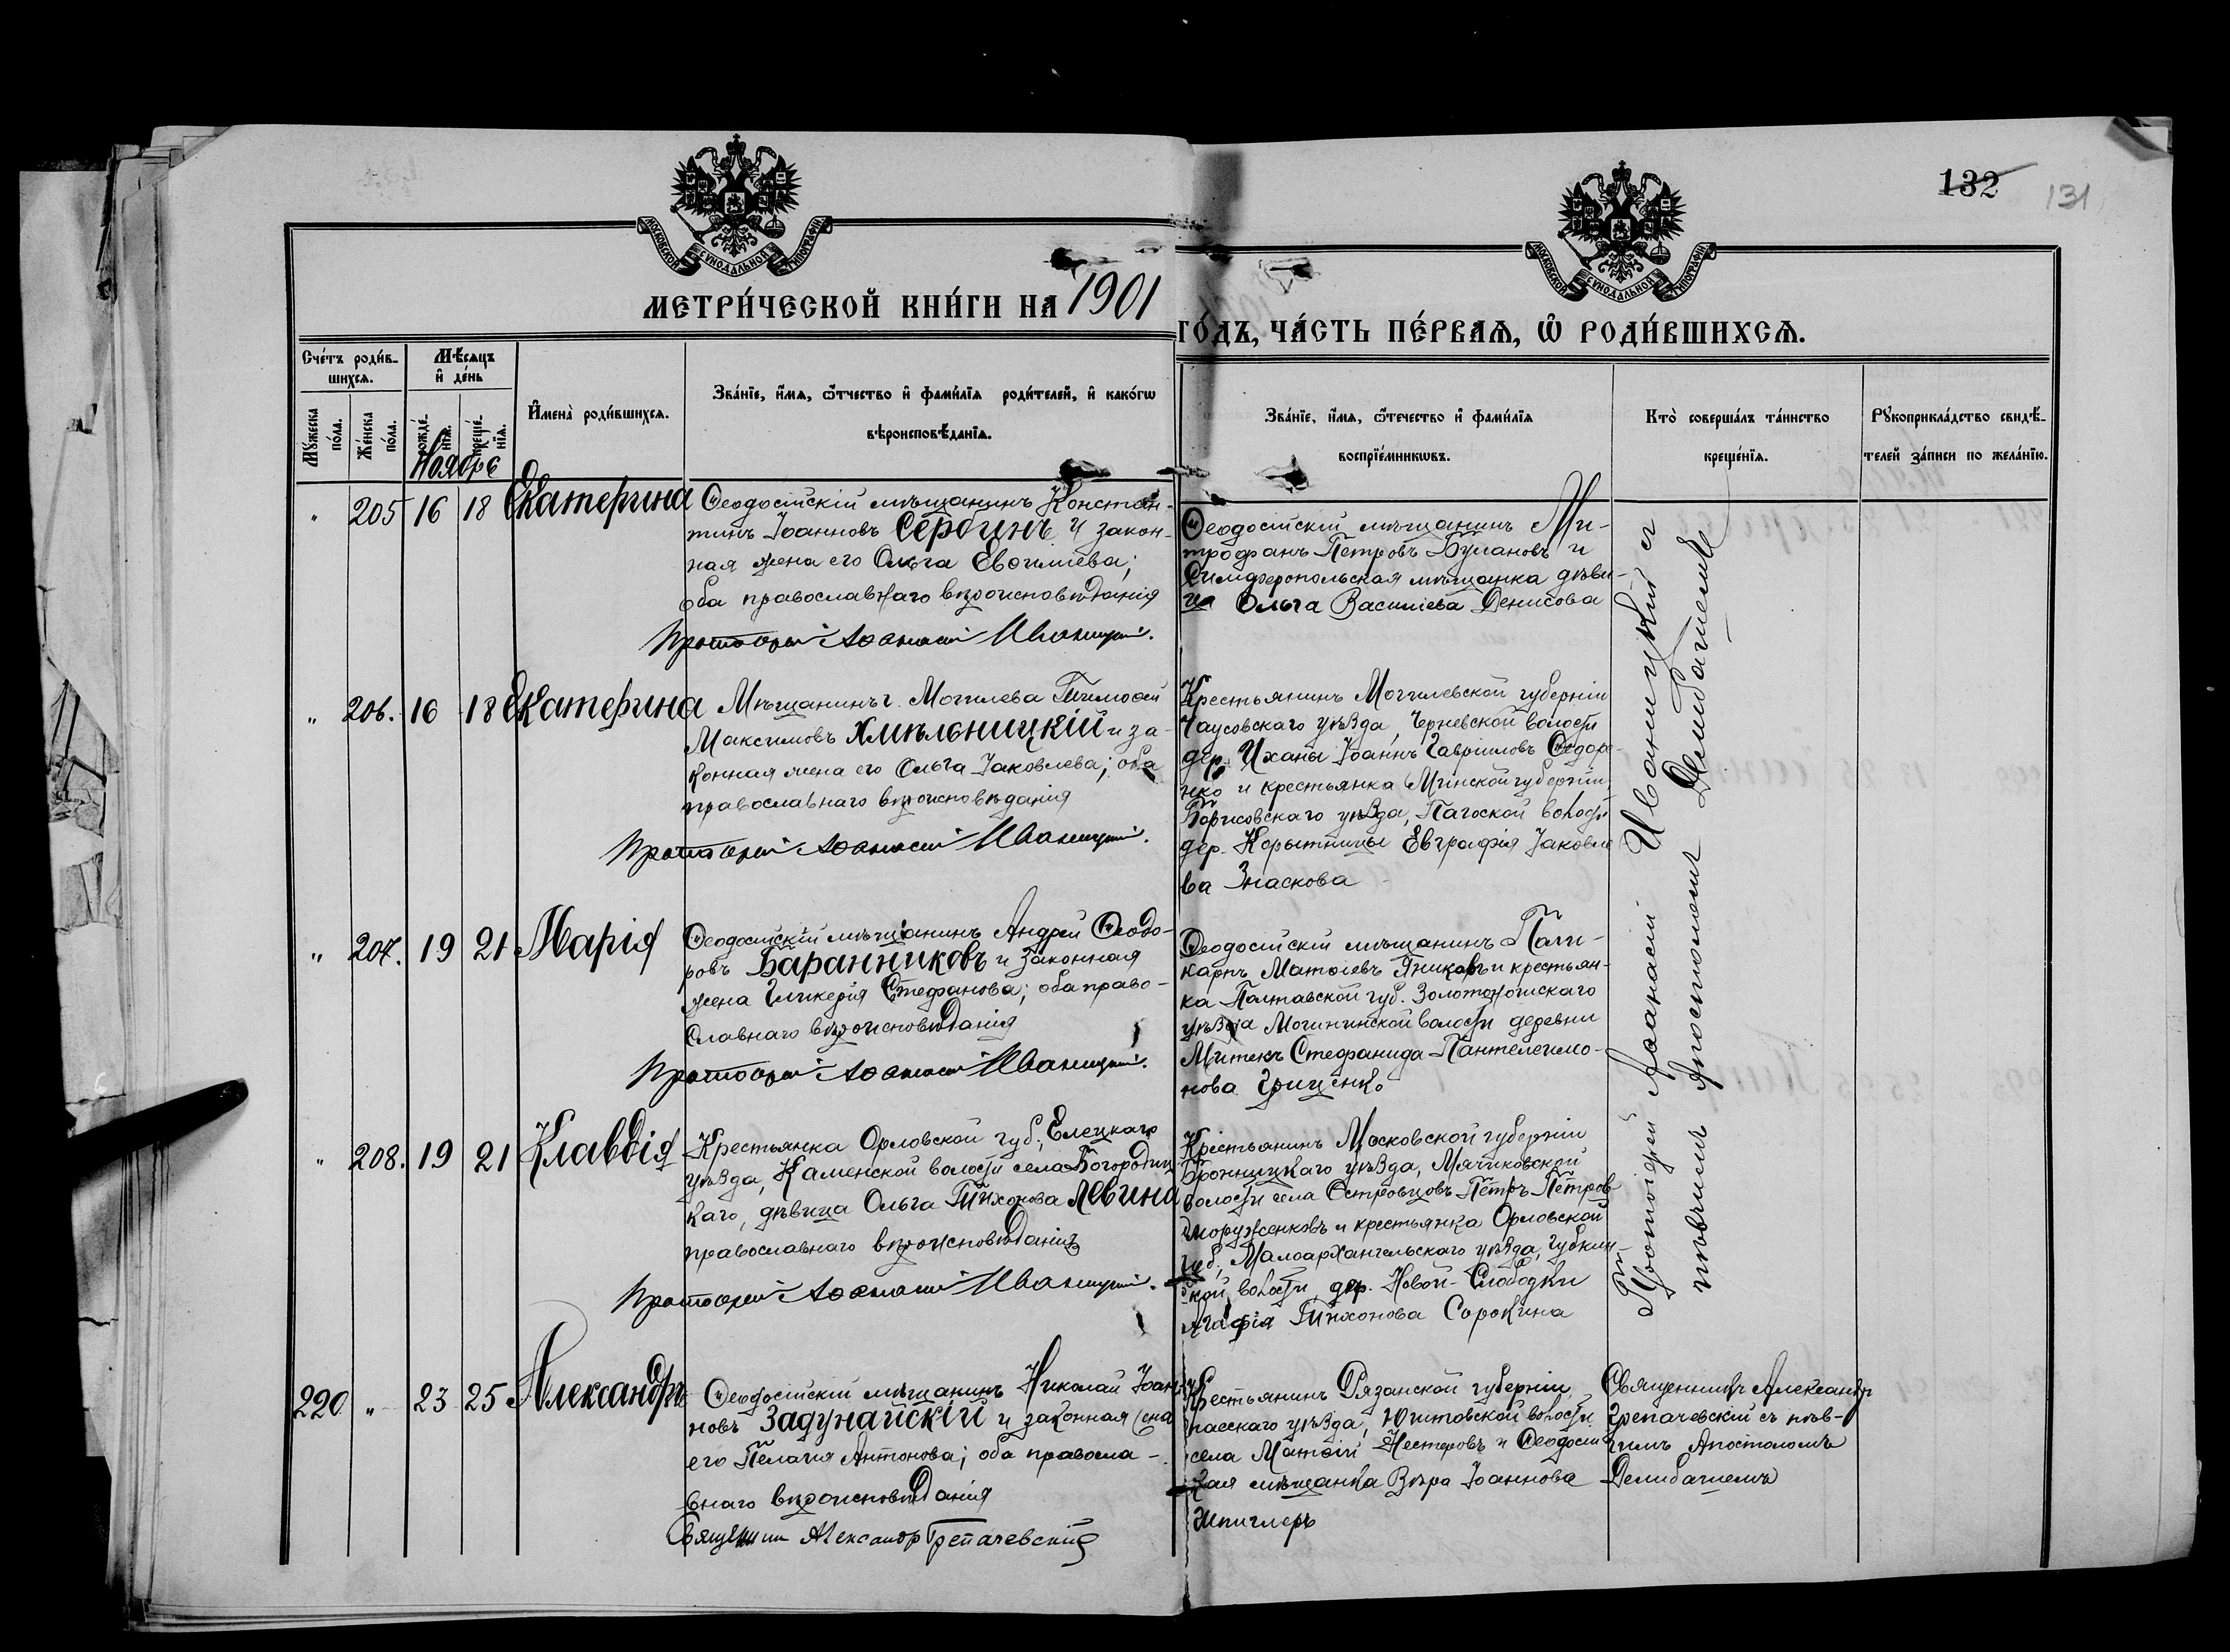 132
131
МОСКОВСКОЙ СУНОДАЛЬНОЙ ТИПОГРАФІИ
МОСКОВСКОЙ СУНОДАЛЬНОЙ ТИПОГРАФІИ
МЕТРИ́ЧЕСКОЙ КНИ́ГИ НА 1901
ГО́ДЪ, ЧА́СТЬ ПЕ́РВАѦ, Ѡ РОДИ́ВШИХСѦ.
Сче́тъ роди́в-
шихсѧ.
Мѣ́сѧцъ
и де́нь
Мꙋ́жеска
по́ла.
Же́нска
по́ла.
рожде́-
нїѧ.
креще́-
нїѧ.
Имена̀ роди́вшихсѧ.
Зва́нїе, и́мѧ, ѿчество и фами́лїѧ роди́телей, и како́гѡ
вѣроисповѣ́данїѧ.
Зва́нїе, и́мѧ, ѿечество и фами́лїѧ
воспрїе́мникѡвъ.
Кто̀ соверша́лъ та́инство
креще́нїѧ.
Рꙋкоприкла́дство свидѣ́-
телей за́писи по жела́нїю.
Ноябрь
" 205 16 18 Екатерина
Ѳеодосійскій мѣщанинъ Констан-
тинъ Іоанновъ Сербинъ и закон-
ная жена его Ольга Евѳиміева;
оба православнаго вѣроисповѣданія
Протоіерей Аѳанасій Иваницкій.
Ѳеодосійскій мѣщанинъ Ми-
трофанъ Петровъ Булановъ и
Симферопольская мѣщанка дѣви-
ца Ольга Василіева Денисова
" 206. 16 18 Екатерина
Мѣщанинъ г. Могилева Тимоѳей
Максимовъ Хмѣльницкій и за-
конная жена его Ольга Іаковлева; оба
православнаго вѣроисповѣданія
Протоіерей Аѳанасій Иваницкій.
Крестьянинъ Могилевской губерніи
Чаусовскаго уѣзда, Черневской волости
дер. Іоаннъ Гавріиловъ Ѳедоре-
нко и крестьянка Минской губерніи
Борисовскаго уѣзда, волости
дер. Корытницы Евграфія Іаковле
ва Знаскова
" 207. 19 21 Марія
Ѳеодосійскій мѣщанинъ Андрей Ѳеодо-
ровъ Баранниковъ и законная
жена Гликерія Стефанова; оба право-
славнаго вѣроисповѣданія
Протоіерей Аѳанасій Иваницкій.
Ѳеодосійскій мѣщанинъ Поли-
карпъ Матѳіевъ и крестьян-
ка Полтавской губ. Золотоношскаго
уѣзда волости деревни
Стефанида Пантелеимо-
нова Гриценко
" 208. 19 21 Клавдія
Крестьянка Орловской губ., Елецкаго
уѣзда, Каменской волости села Богородиц-
каго, дѣвица Ольга Тихонова Левина
православнаго вѣроисповѣданія
Протоіерей Аѳанасій Иваницкій.
Крестьянинъ Московской губерніи
Бронницкаго уѣзда, Мячковской
волости села Островцовъ Петръ Петров
и крестьянка Орловской
губ., Малоархангельскаго уѣзда, Губкин-
ской волости, дер. Новой-Слободки
Агафія Тихонова Сорокина
Протоіерей Аѳанасій Иваницкій съ
пѣвчимъ Апостоломъ Делибалтемъ
220 " 23 25 Александръ
Ѳеодосійскій мѣщанинъ Николай Іоан-
новъ Задунайскій и законная жена
его Пелагія Антонова; оба правосла-
внаго вѣроисповѣданія
Священникъ Александръ Трепачевскій
Крестьянинъ Рязанской губерніи
Спасскаго уѣзда, волости
села Матѳій Нестеровъ и Ѳеодосій
ская мѣщанка Вѣра Іоаннова
Шпиглеръ
Священникъ Александръ
Трепачевскій съ пѣв-
чимъ Апостоломъ